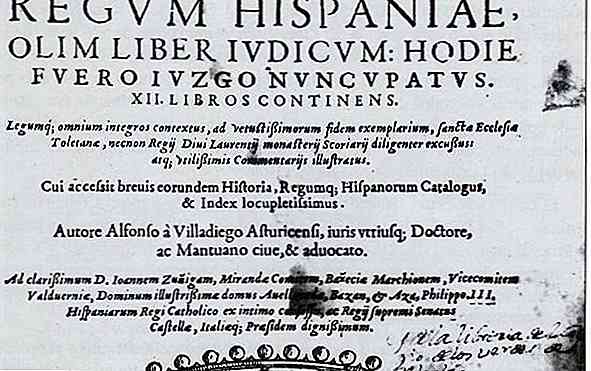 REGVM HISPANIAE,
OLIM LIBER IVDICVM: HODIE
FVERO IVZGO NVNCVPATVS.
XII. LIBROS CONTINENS.
Legumq; omnium integros contextus, ad vetustißimorum fidem exemplarium, sanctæ Ecclesiæ
Toletanæ, necnon Regij Diui Laurentij monasterij Scoriarij diligenter excussus:
atq; vtilißimis Commentarijs illustratus.
Cui accessit breuis eorundem Historia, Regumq; Hispanorum Catalogus,
& Index locupletissimus.
Autore Alfonso à Villadiego Asturicensi, iuris vtriusq; Doctore,
ac Mantuano ciue, & aduocato.
Ad clarißimum D. Ioannem Zuñigam, Mirandæ Comitem, Bañeciæ Marchionem, Vicecomitem
Valduerniæ, Dominum illustrißimæ domus Bazan, & Aza, Philippo III.
Hispaniarum Regi Catholico ex intimo ac Regij supremi Senatus
Castellæ, Italieq; Præsidem dignißimum.
libreria de